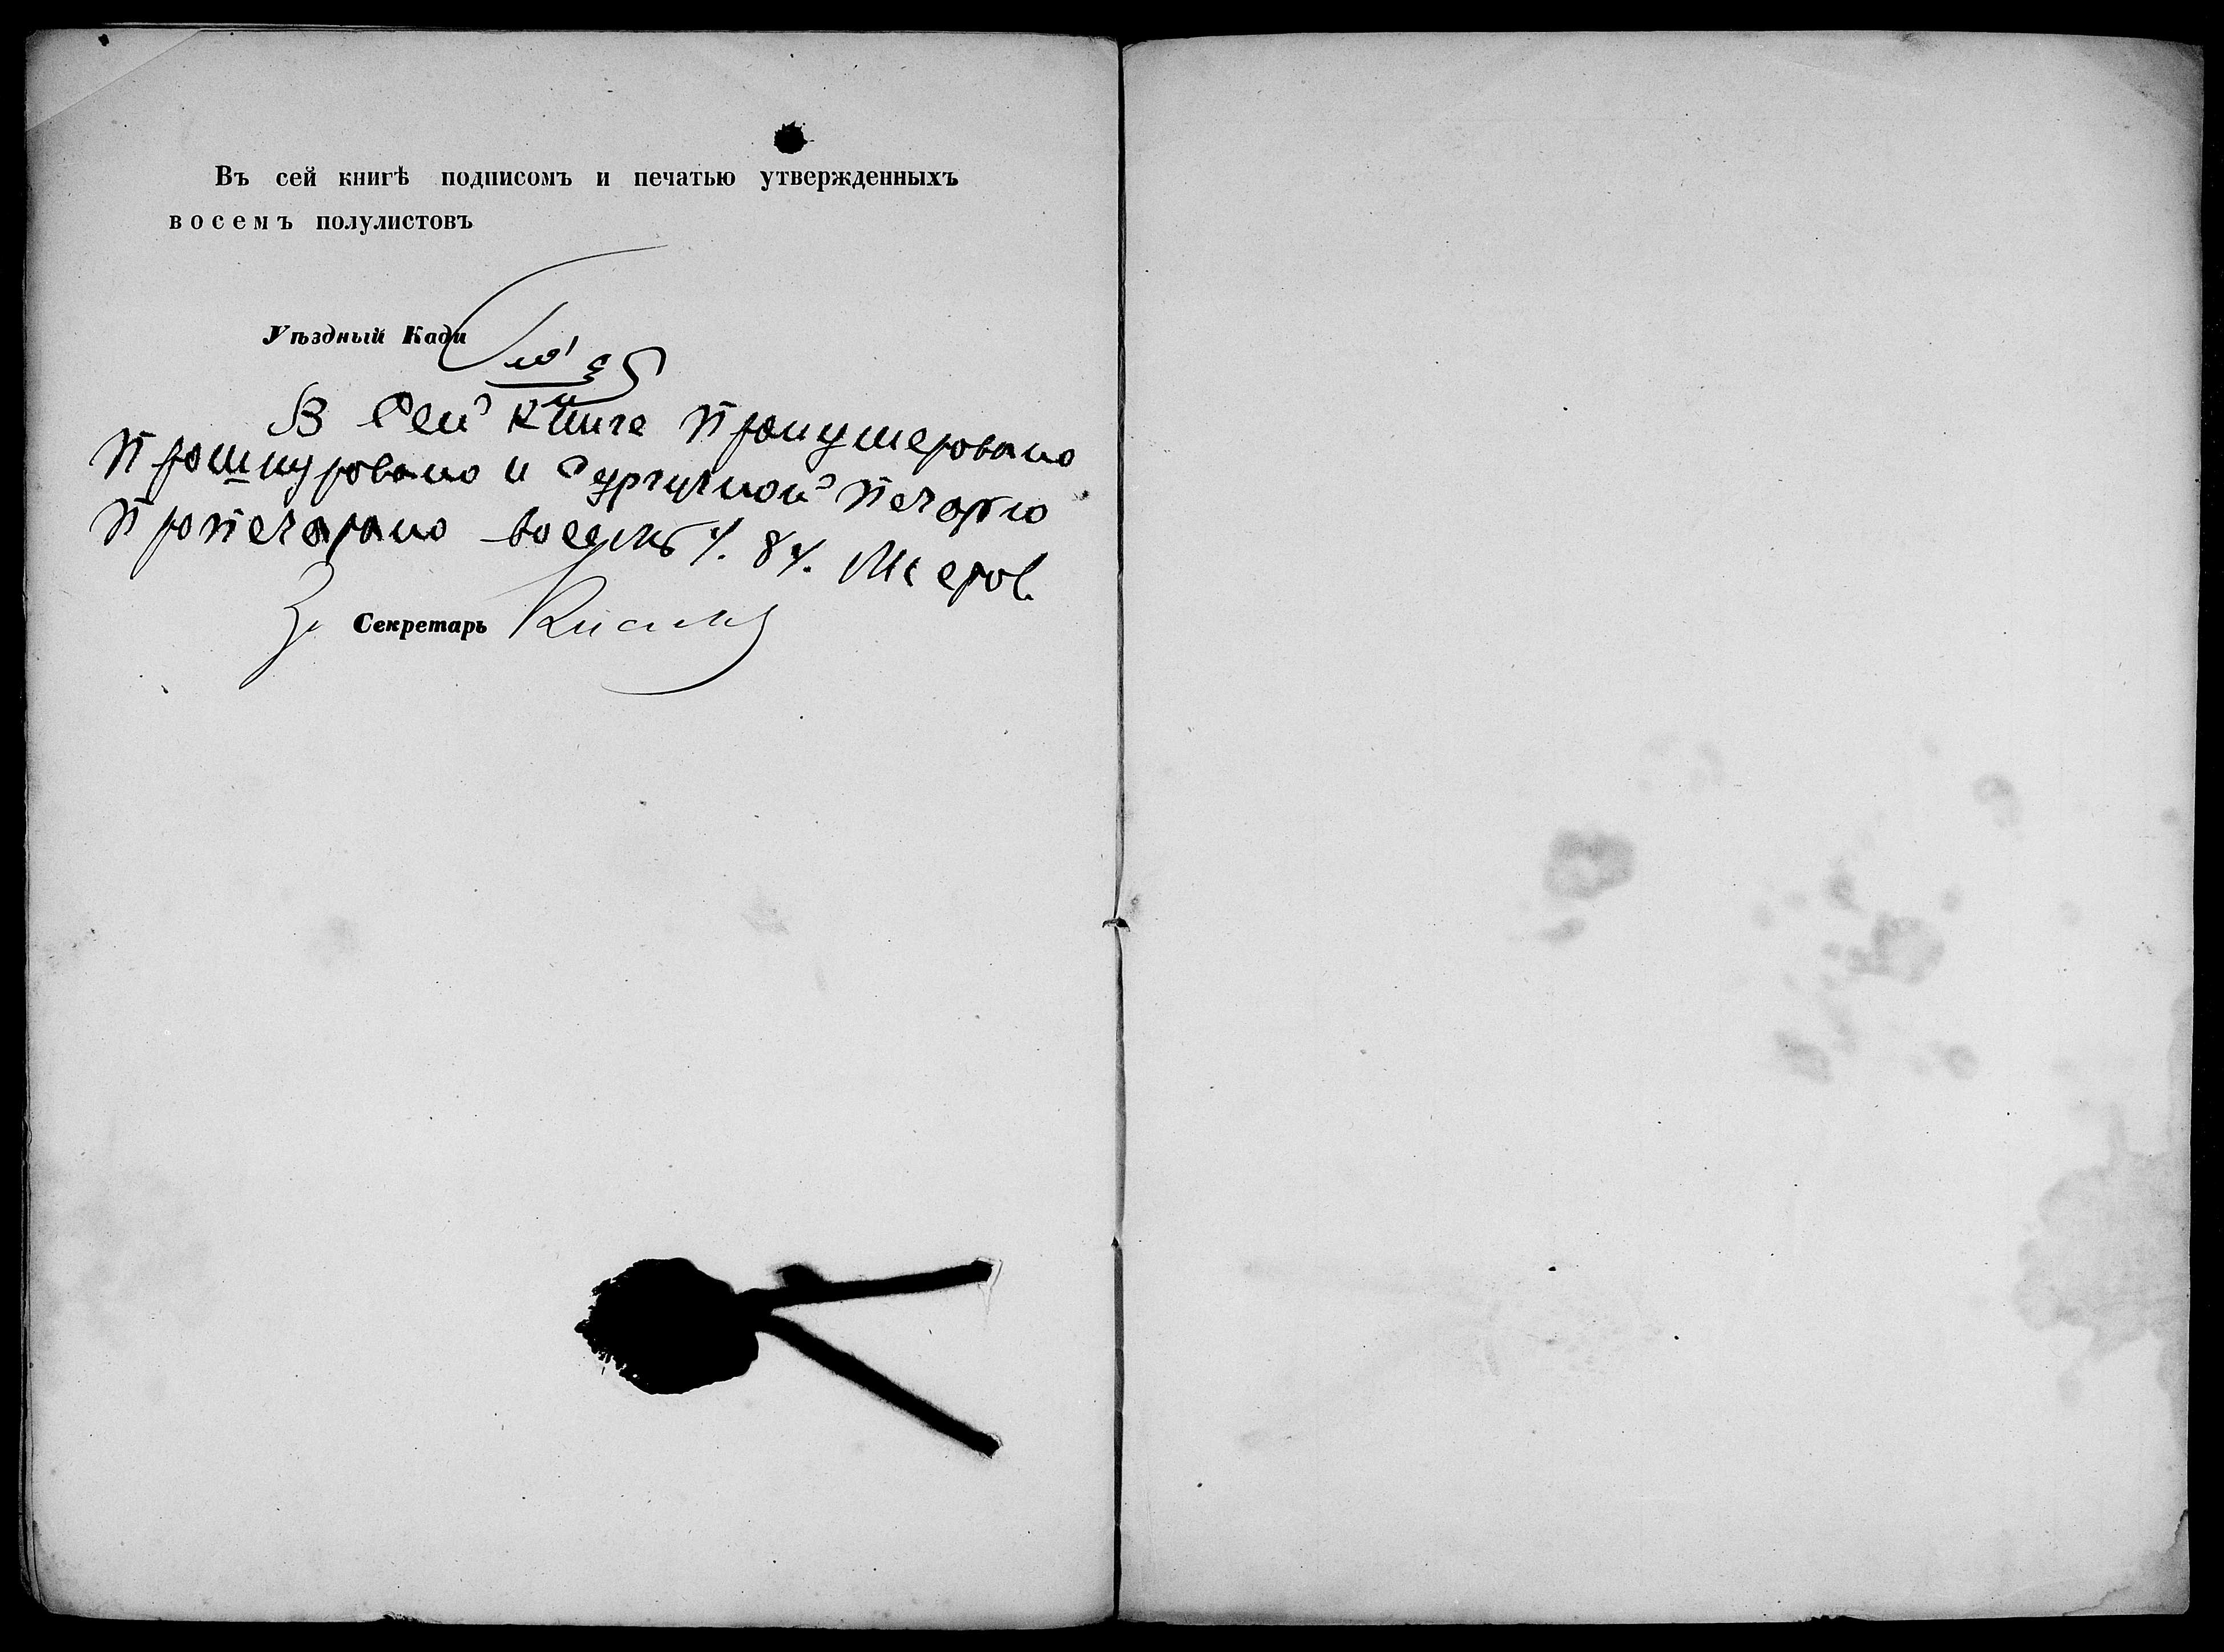 Въ сей книгѣ подписомъ и печатью утвержденныхъ
восемъ полулистовъ
Уѣздный Кади
В Сей Книге Пронумеровано
Прошнуровано и Сургучной Печатю
Пропечатано
За Секретарь